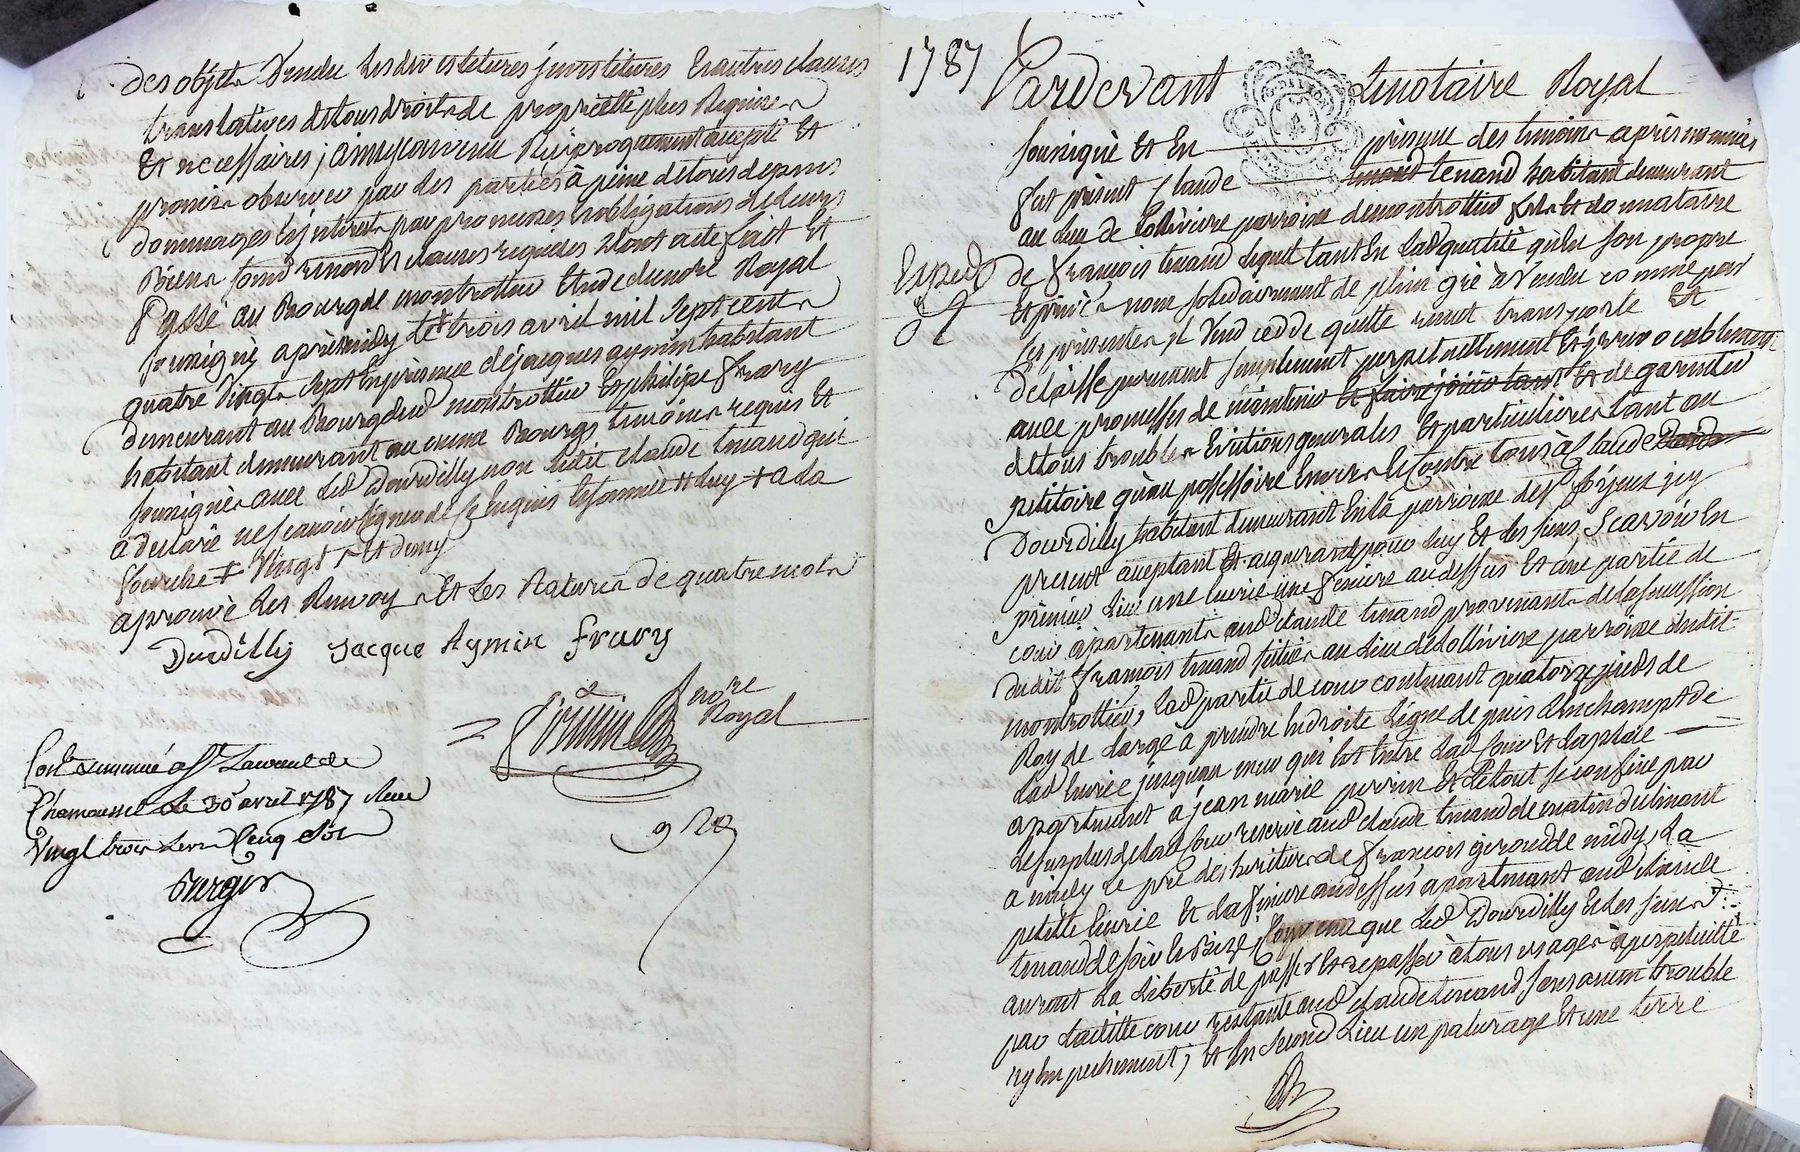 des objets vendu les devestitures jnvestitures Et autres clauses
translatives de tous droits de proprietté plus Requises
Et necessaires ; ainsy convenu Reciproquement accepté Et
promis observer par des parties à peine de tous depens
dommages Et jnterets par promesses obligations de leurs
Biens soumis renond. clauses requises dont acte fait Et
Passé au Bourg de montrottier Etude du nore Royal
soussigné après midy le trois avril mil sept cents
quatre vingts sept En presence de jacques aymin habitant
demeurant au Bourg dud. montrottier Et philipe frary
habitant demeurant au meme Bourg temoins requis Et
soussignés avec led. Dourdilly non ledit claude tenand qui
a declaré ne scavoir signer de ce enquis Et sommé Et luy + a la
fourche ‡ vingt Et demy
aprouvé les Renvoy Et les Rature de quatre mots
Durdilly Jacque Aymin Frary
nore
Royal
Controllé à St Laurent de
Chamousset le 30 avril 1787 Reçu
vingt trois livres cinq sols
Berger
1787 Pardevant Le notaire Royal
soussigné Et En presence des temoins après nommés
fut présent Claude tenand habitant demeurant
au lieu de Lollivière parroisse de montrottier fils Et donnataire
de françois tenand lequel tant En lad. qualité qu'En son propre
Exped
Et privé nom solidairement de plein gré à vendu comme par
ses présentes il vend cedde quitte remet transporte Et
delaisse purement simplement perpetuellement Et jrrevocablement
avec promesses de maintenir Et faire jouir tant Et de garentir
de tous troubles Evictions generales Et particulieres tant au
petitoire qu'au possessoire Envers Et Contre tous à Claude
Dourdilly habitant demeurant En la parroisse de jcy
present acceptant Et aquerant pour luy Et les siens, Scavoir En
premier lieu une Ecurie une feniere au dessus Et une partie de
cour apartenants aud. claude tenand provenants de la succession
dudit françois tenand scitués au lieu de Lollivière parroisse dudit
montrottier, lad. partie de cour contenant quatorze pieds de
Roy de large a prendre En droite Ligne de puis
lad. Ecurie jusquau mur qui Est Entre lad. cour Et la place
apartenant à jean marie perrin Et Le tout se confine par
le surplus de lad. cour reservé aud. claude tenand de matin
a midy le pré des heritiers de françois giroud de midy, La
petitte Ecurie Et la feniere au dessus apartenant aud. claude
tenand de soir Et Bize, Convenu que led. Dourdilly Et les siens
auront la Liberté de passer Et repasser à tous usages à perpetuitté
par laditte cour restante aud. claude tenand sans aucun trouble
ny Empechement; Et En second Lieu un paturage Et une terre